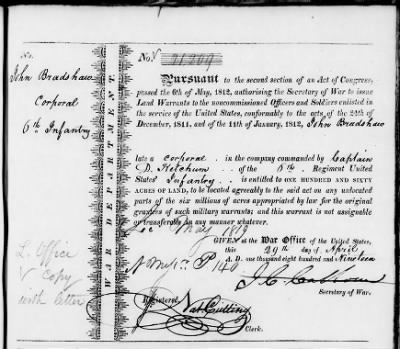 No.
John Bradshaw
Corporal
6th Infantry
WAR DEPARTMENT.
No. 21209
Pursuant to the second section of an Act of Congress,
passed the 6th of May, 1812, authorising the Secretary of War to issue
Land Warrants to the noncommissioned Officers and Soldiers enlisted in
the service of the United States, conformably to the acts of the 24th
of December, 1811, and of the 11th of January, 1812, John Bradshaw
late a corporal in the company commanded by Captain
D. Ketchum of the 6th Regiment United
States' Infantry is entitled to ONE HUNDRED AND SIXTY
ACRES OF LAND, to be located agreeably to the said act on any unlocated
parts of the six millions of acres appropriated by law for the original
grantees of such military warrants; and this warrant is not assignable
or transferable in any manner whatever.
May 1819
GIVEN at the War Office of the United States,
this 29th day of April
A. D. one thousand eight hundred and Nineteen
P 140
J. C. Calhoun
Secretary of War.
Registered
Nat Cutting
Clerk.
L. Office
copy
with letter